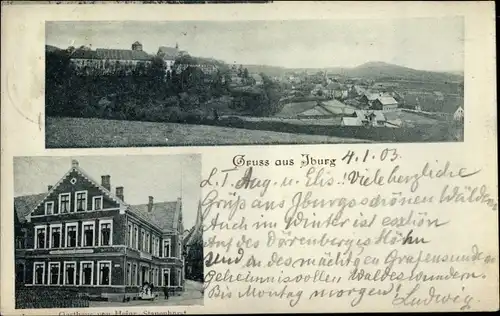 Gruss aus Iburg 4.1.03
L. T. Aug. u. Elis.! Viele herzliche
Grüß aus Iburgs schönen Wäldern
Auch im Winter ist es schön
Auf des Dörenberges Höhn
und an des mächtgen Grafensundern
Geheimnisvollen Waldeswundern.
Bis Montag morgen! Ludwig
Gasthaus von Heinr. Stapenhorst